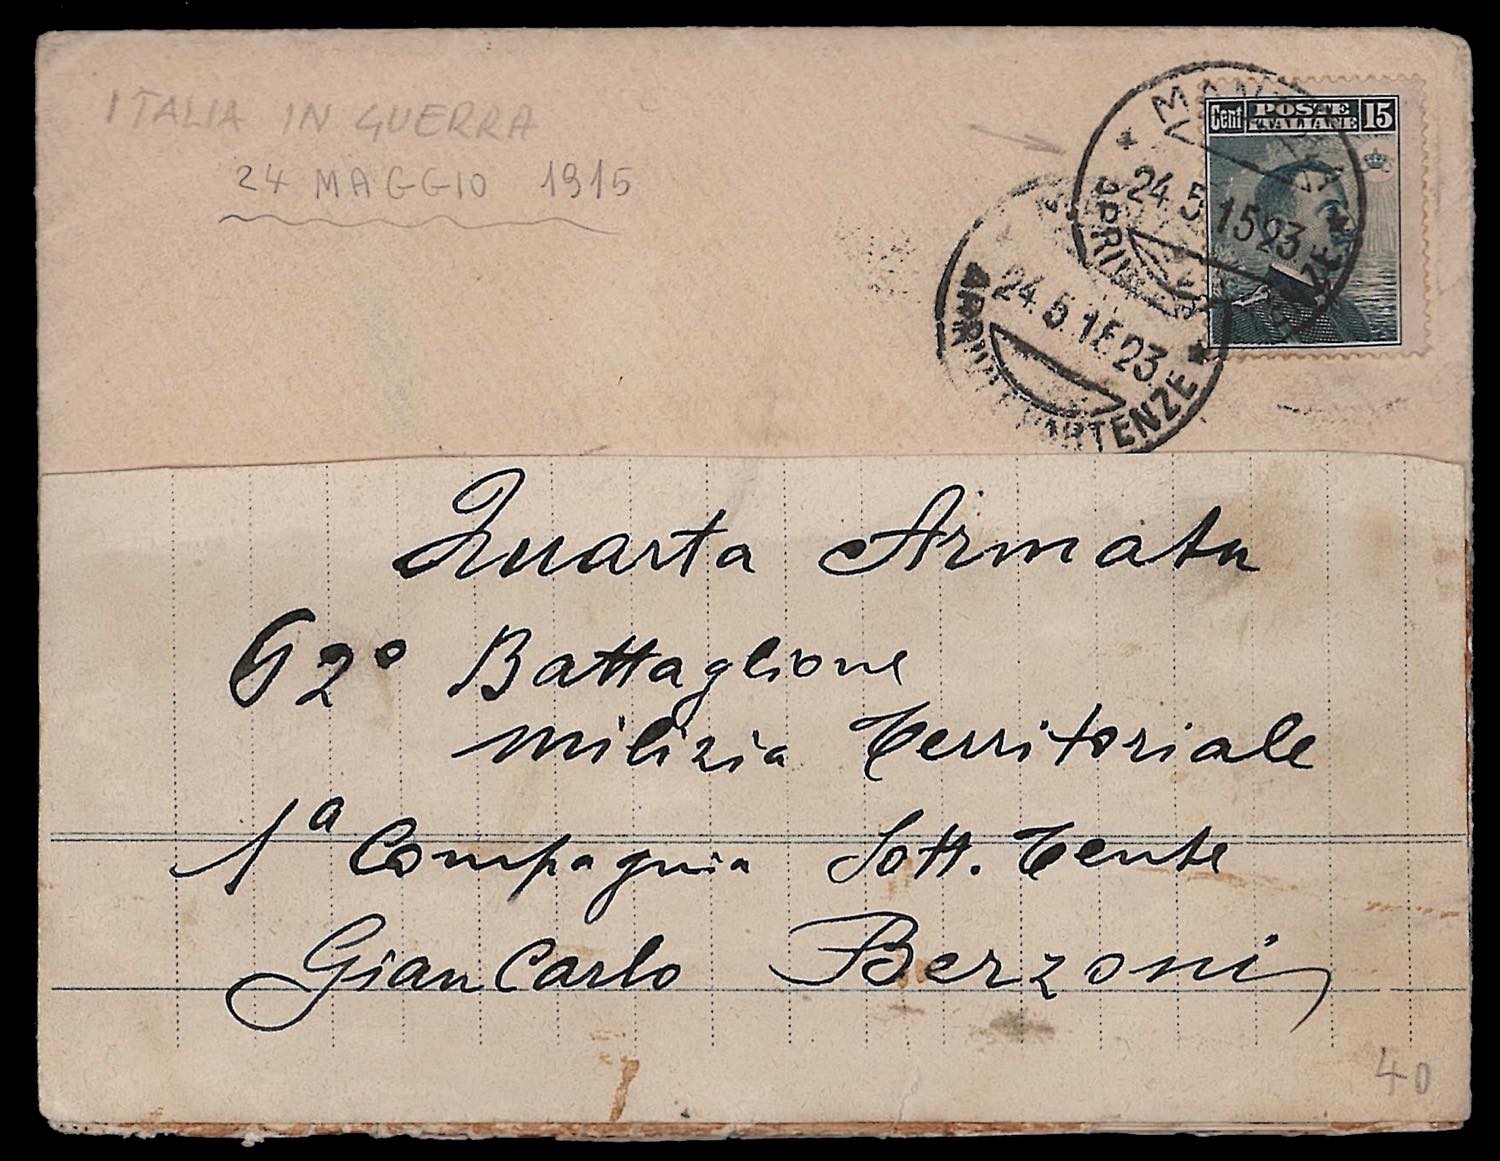 ITALIA IN GUERRA
24 MAGGIO 1915
Cent POSTE ITALIANE 15
24.5.15 23
ARRIVI E PARTENZE
24.5.15 23
ARRIVI E PARTENZE
Quarta Armata
62° Battaglione
milizia territoriale
1ª Compagnia Sott. tente
Gian Carlo Berzoni
40